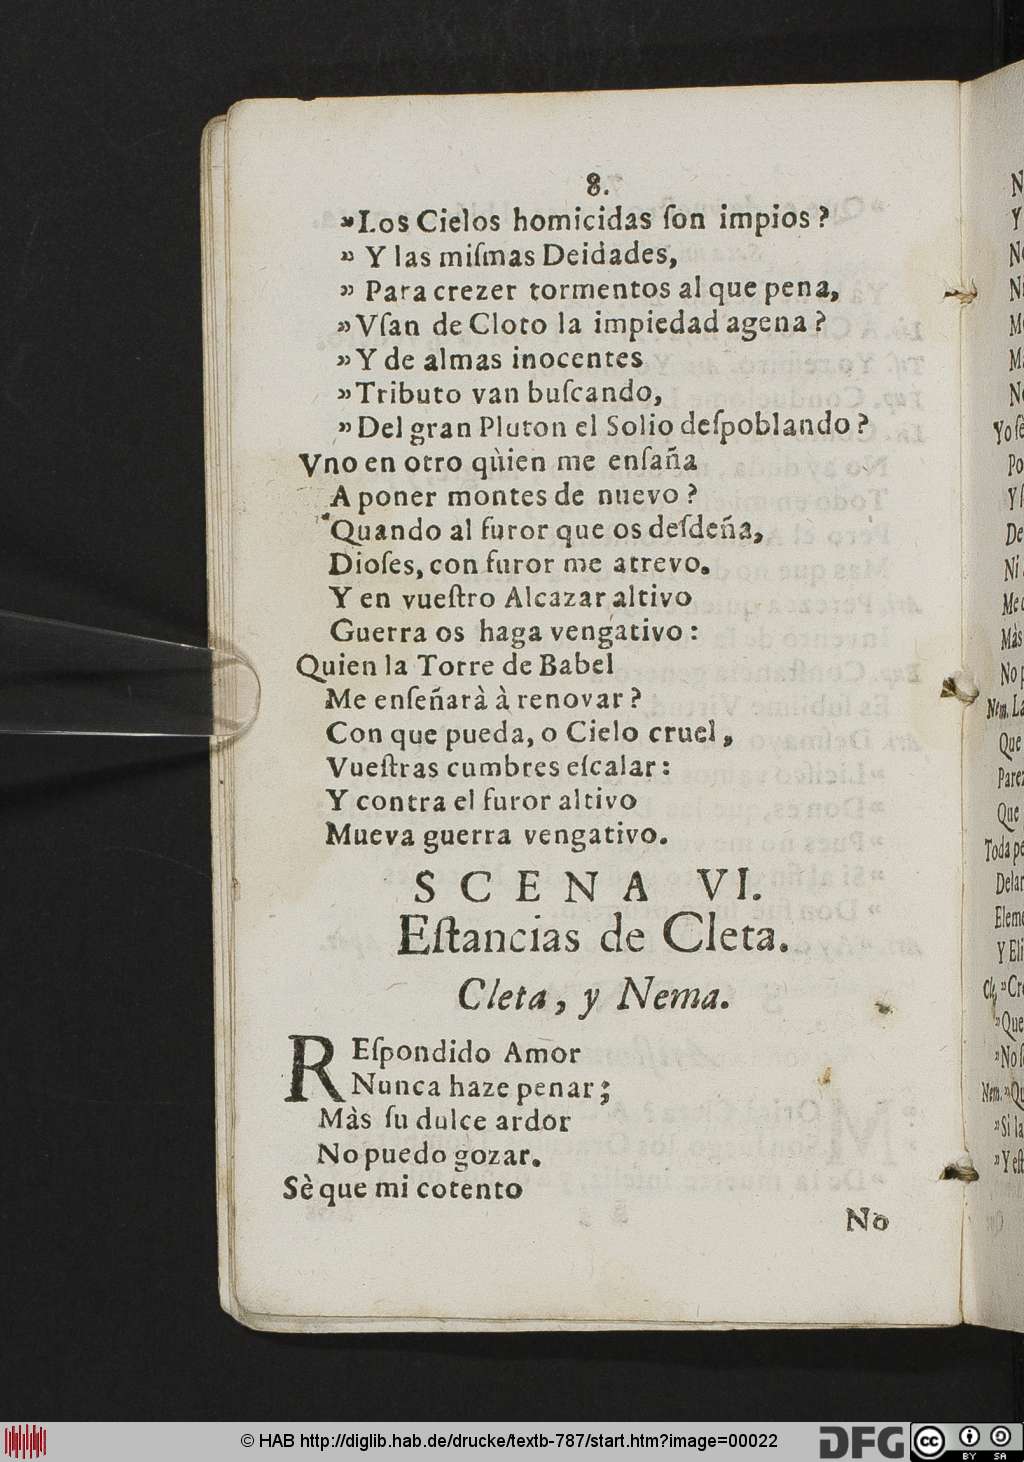 8.
”Los Cielos homicidas ſon impios?
” Y las miſmas Deidades,
” Para crezer tormentos al que pena,
”Vſan de Cloto la impiedad agena?
”Y de almas inocentes
”Tributo van buſcando,
”Del gran Pluton el Solio deſpoblando?
Vno en otro qùien me enſaña
A poner montes de nuevo?
Quando al furor que os deſdeña,
Dioſes, con furor me atrevo.
Y en vueſtro Alcazar altivo
Guerra os haga vengativo:
Quien la Torre de Babel
Me enſeñarà à renovar?
Con que pueda, o Cielo cruel,
Vueſtras cumbres eſcalar:
Y contra el furor altivo
Mueva guerra vengativo.
SCENA VI.
Eſtancias de Cleta.
Cleta, y Nema.
REſpondido Amor
Nunca haze penar;
Màs ſu dulce ardor
No puedo gozar.
Sè que mi cotento
No
Yo ſe
Nem. La
Que
Parez
Que
Toda pe
Delan
Eleme
Y Eli
Cle, ”Cre
”Que
”No ſ
Nem. ”Qu
”Sì la
”Y eſt
© HAB http://diglib.hab.de/drucke/textb-787/start.htm?image=00022
DFG
cc
BY SA